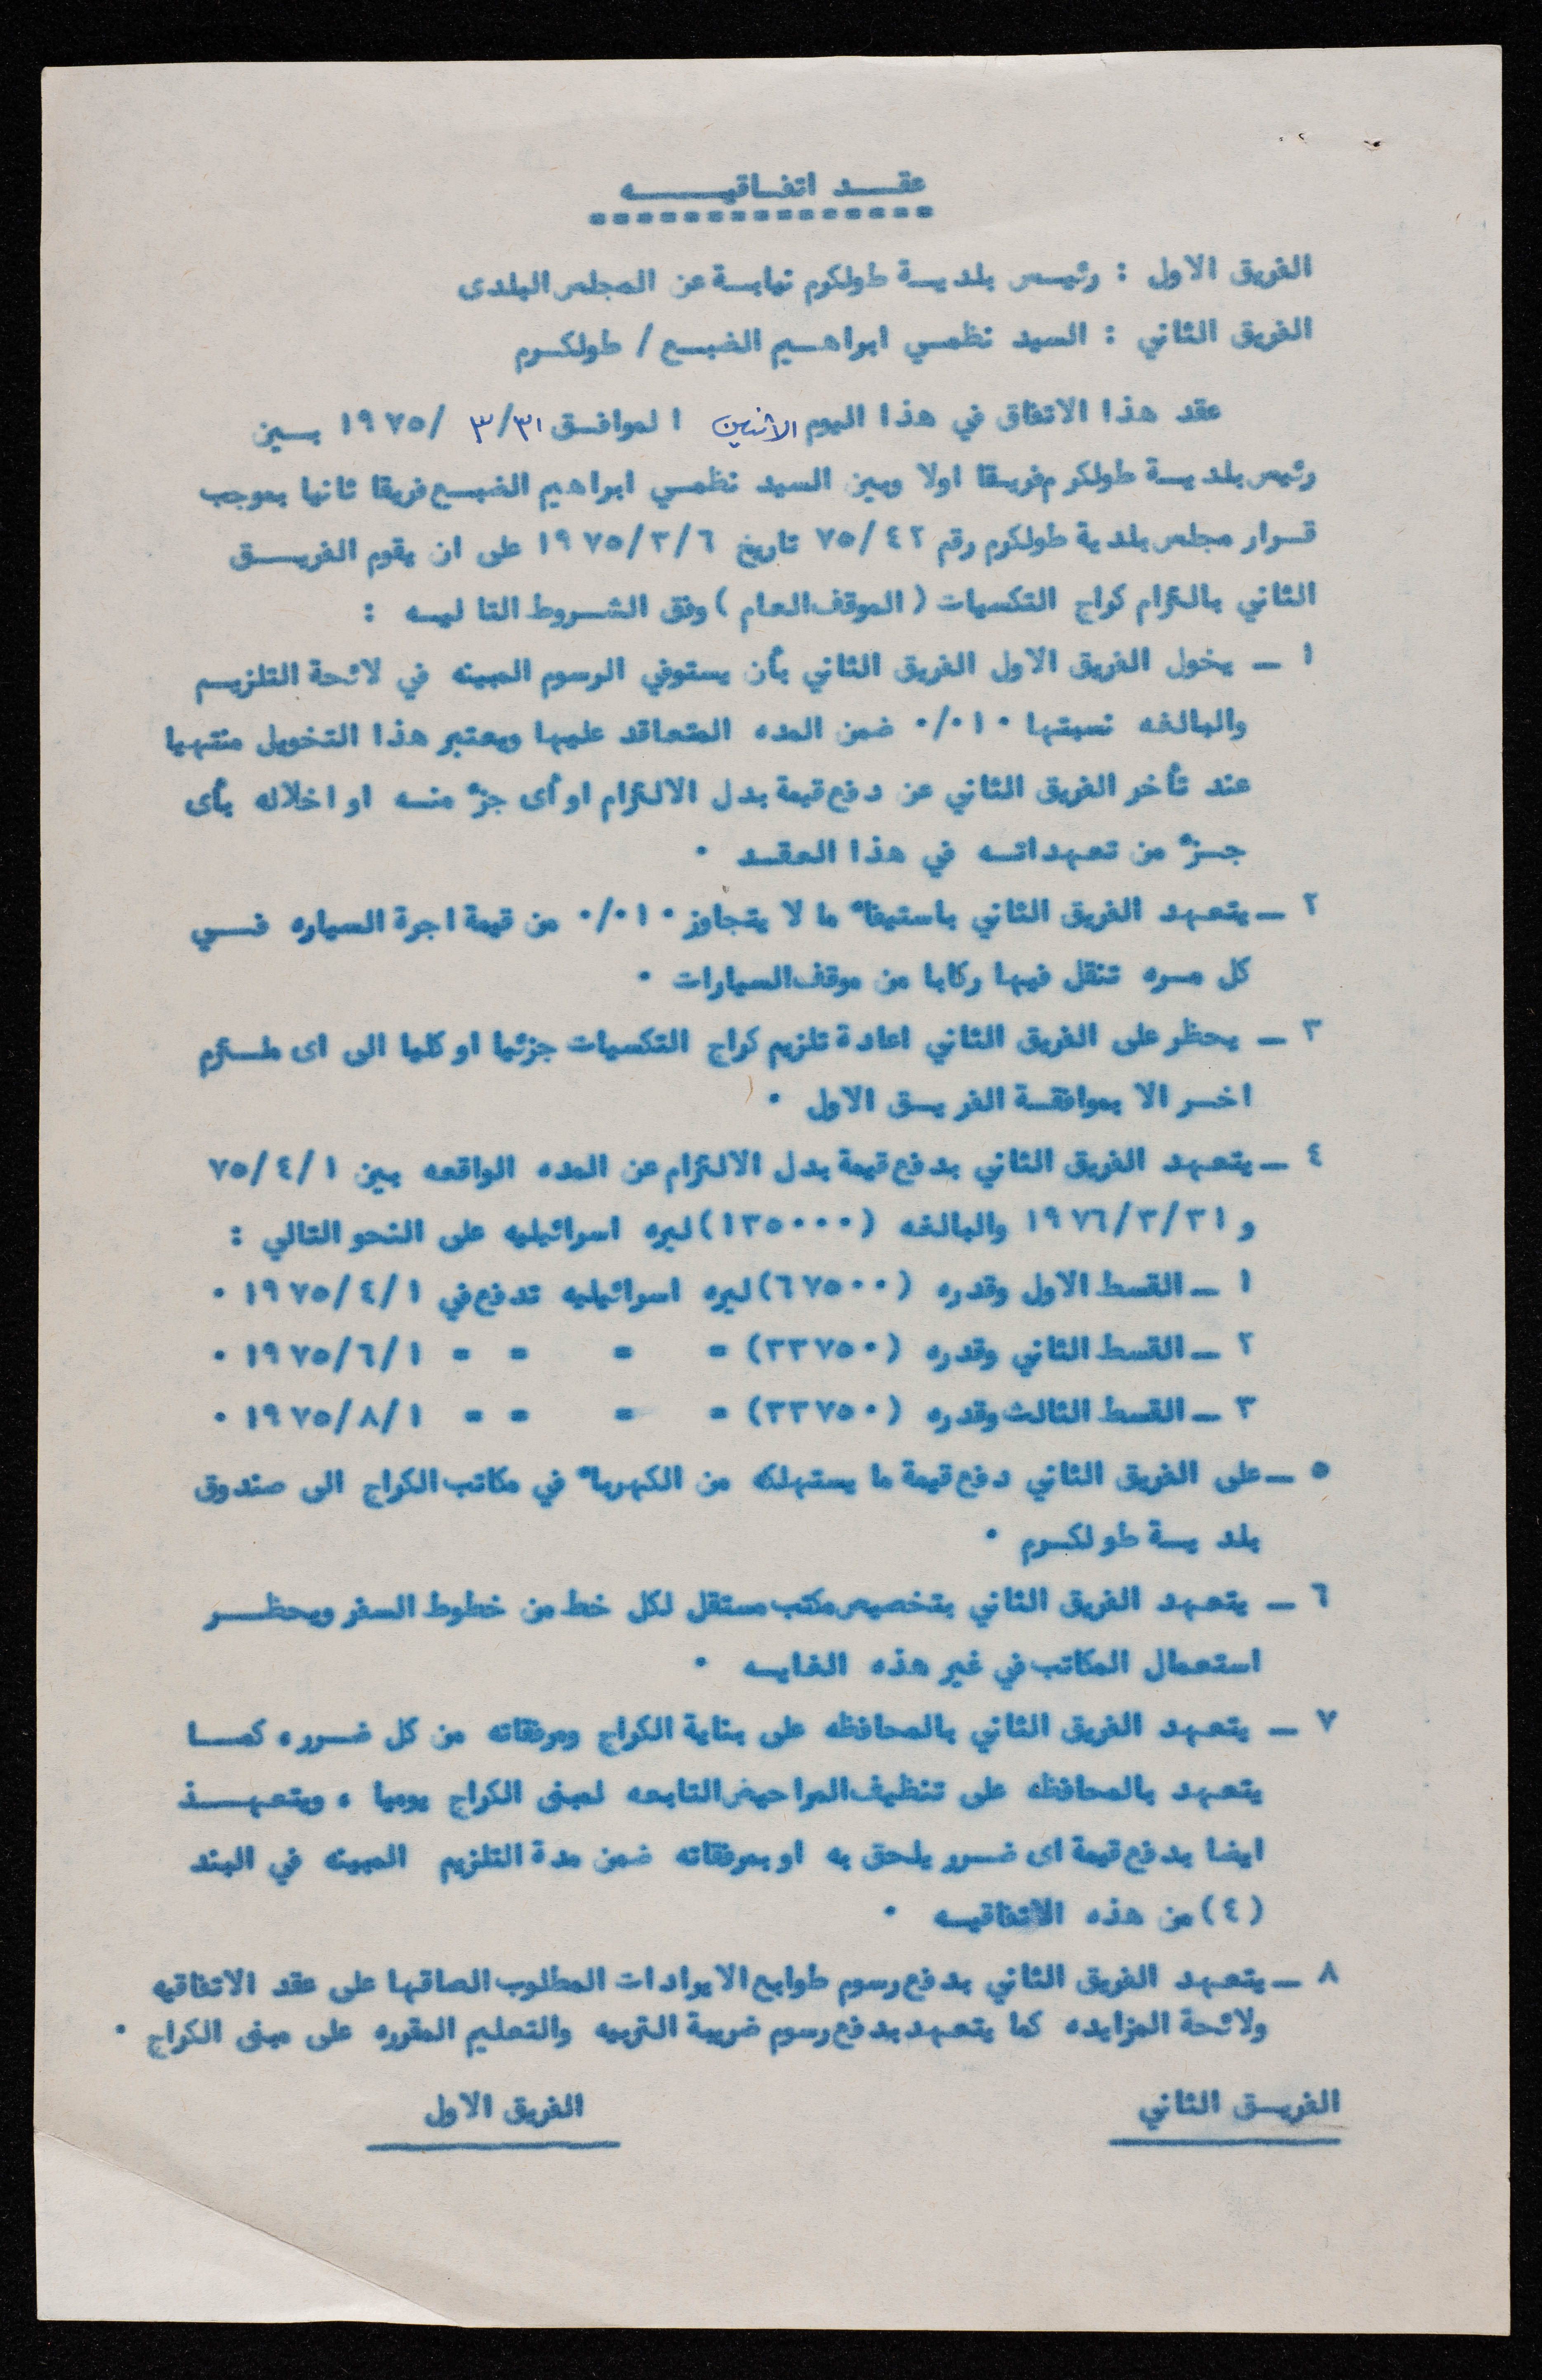 عقــد اتفــاقيــــه
الفريق الاول : رئيــس بلديــة طولكرم نيابــة عن المجلس البلدى
الفريق الثاني : السيد نظمــي ابراهــيم الضبــع / طولكــرم
عقد هذا الاتفاق في هذا اليوم الاثنين الموافــق ٣١/٣ /١٩٧٥ بــين
رئيس بلديــة طولكرم فريــقا اولا وبين السيد نظمــي ابراهيم الضبــع فريقا ثانيا بموجب
قــرار مجلس بلدية طولكرم رقم ٧٥/٤٢ تاريخ ١٩٧٥/٣/٦ على ان يقوم الفريــــق
الثاني بالتزام كراج التكسيات ( الموقف العام ) وفق الشــروط التاليــه :
١ ــ يخول الفريق الاول الفريق الثاني بأن يستوفي الرسوم المبينه في لائحة التلزيــم
والبالغه نسبتها ١٠ ٠/٠ ضمن المده المتعاقد عليها ويعتبر هذا التخويل منتهيا
عند تأخر الفريق الثاني عن دفع قيمة بدل الالتزام او أى جزء منــه او اخلاله بأى
جــزء من تعهداتــه في هذا العقــد ٠
٢ ــ يتعهد الفريق الثاني باستيفاء ما لا يتجاوز ١٠ ٠/٠ من قيمة اجرة السياره فــي
كل مــره تنقل فيها ركابا من موقف السيارات ٠
٣ ــ يحظر على الفريق الثاني اعادة تلزيم كراج التكسيات جزئيا او كليا الى اى ملــتزم
اخــر الا بموافقــة الفريــق الاول ٠
٤ ــ يتعهد الفريق الثاني بدفع قيمة بدل الالتزام عن المده الواقعه بين ٧٥/٤/١
و ١٩٧٦/٣/٣١ والبالغه (١٣٥٠٠٠) ليره اسرائيليه على النحو التالي :
١ ــ القسط الاول وقدره (٦٧٥٠٠) ليره اسرائيليه تدفع في ١٩٧٥/٤/١ ٠
٢ ــ القسط الثاني وقدره (٣٣٧٥٠) = = = = ١٩٧٥/٦/١ ٠
٣ ــ القسط الثالث وقدره (٣٣٧٥٠) = = = = ١٩٧٥/٨/١ ٠
٥ ــ على الفريق الثاني دفع قيمة ما يستهلكه من الكهرباء في مكاتب الكراج الى صندوق
بلديــة طولكــرم ٠
٦ ــ يتعهد الفريق الثاني بتخصيص مكتب مستقل لكل خط من خطوط السفر ويحظــر
استعمال المكاتب في غير هذه الغايــه ٠
٧ ــ يتعهد الفريق الثاني بالمحافظه على بناية الكراج ومرفقاته من كل ضــرر ، كمــا
يتعهد بالمحافظه على تنظيف المراحيض التابعه لمبنى الكراج يوميا ، ويتعهــد
ايضا بدفع قيمة اى ضــرر يلحق به او بمرفقاته ضمن مدة التلزيم المبينه في البند
(٤) من هذه الاتفاقيــه ٠
٨ ــ يتعهد الفريق الثاني بدفع رسوم طوابع الايرادات المطلوب الصاقها على عقد الاتفاقيه
ولائحة المزايده كما يتعهد بدفع رسوم ضريبة التربيه والتعليم المقرره على مبنى الكراج ٠
الفريــق الثاني الفريق الاول